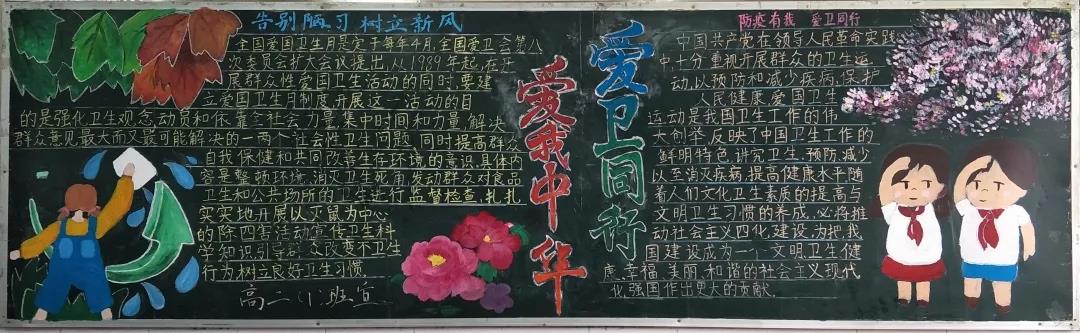 告别陋习 树立新风
全国爱国卫生月是定于每年4月,全国爱卫会第八
次委员会扩大会议提出,从1989年起,在开
展群众性爱国卫生活动的同时,要建
立爱国卫生月制度,开展这一活动的目
的是强化卫生观念,动员和依靠全社会力量,集中时间和力量,解决
群众意见最大而又最可能解决的一两个社会性卫生问题,同时提高群众
自我保健和共同改善生存环境的意识,具体内
容是整顿环境,消灭卫生死角,发动群众对食品
卫生和公共场所的卫生进行监督检查,扎扎
实实地开展以灭鼠为中心
的除四害活动,宣传卫生科
学知识,引导群众改变不卫生
行为,树立良好卫生习惯
高二(1)班宣
爱我中华
爱卫同行
防疫有我 爱卫同行
中国共产党在领导人民革命实践
中,十分重视开展群众的卫生运
动,以预防和减少疾病,保护
人民健康,爱国卫生
运动是我国卫生工作的伟
大创举,反映了中国卫生工作的
鲜明特色,讲究卫生,预防,减少
以至消灭疾病,提高健康水平,随
着人们文化卫生素质的提高与
文明卫生习惯的养成,必将推
动社会主义四化建设,为把我
国建设成为一个文明,卫生,健
康,幸福,美丽,和谐的社会主义现代
化强国作出更大的贡献.